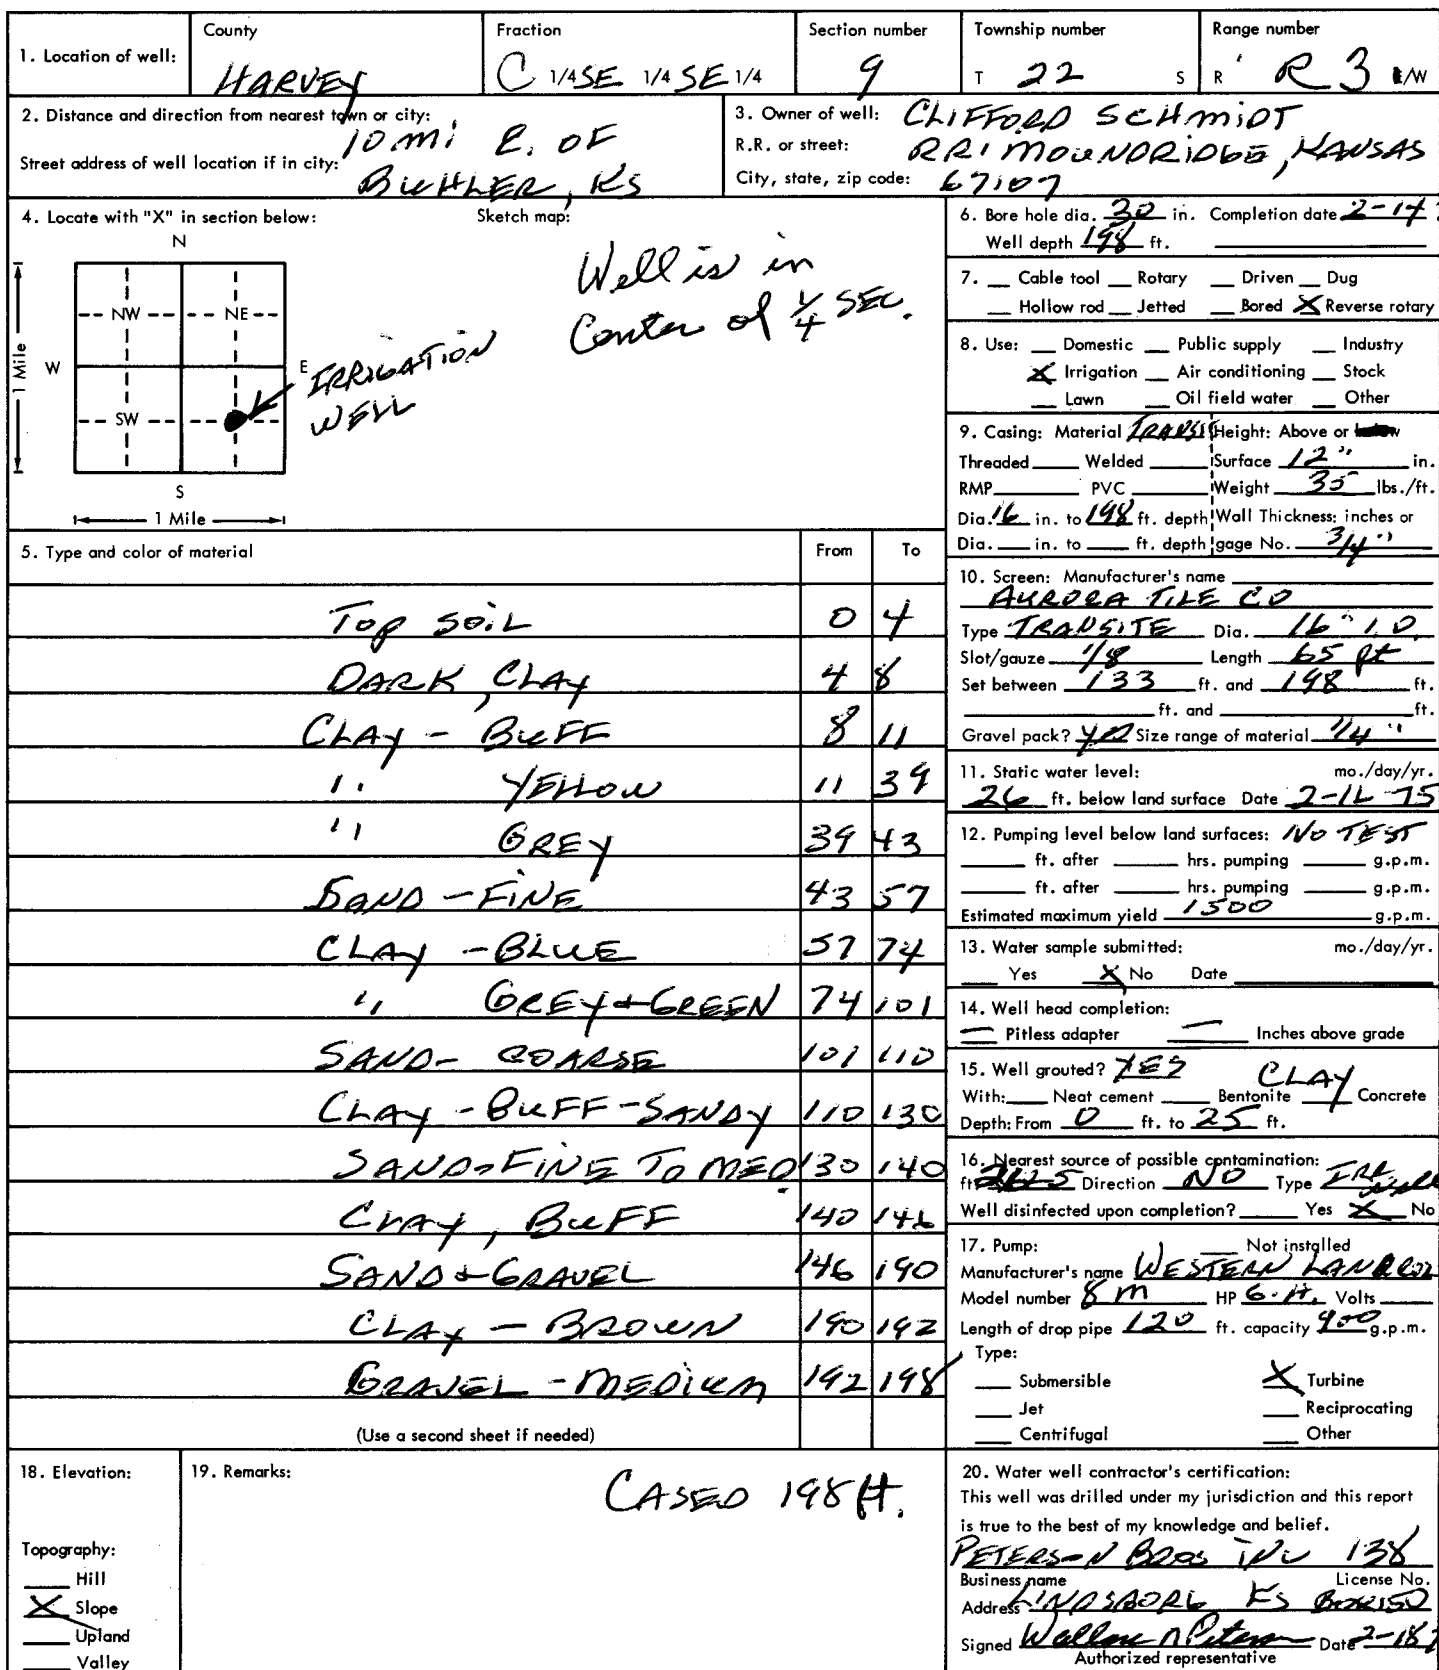 1. Location of well:
County
HARVEY
Fraction
C 1/4 SE 1/4 SE 1/4
Section number
9
Township number
T 22 S
Range number
R R 3 E/W
2. Distance and direction from nearest town or city:
10 mi E. OF
Street address of well location if in city:
BUHLER, KS
3. Owner of well: CLIFFORD SCHMIDT
R.R. or street: RR1 MOUNDRIDGE, KANSAS
City, state, zip code: 67107
4. Locate with "X" in section below:
Sketch map:
N
NW NE
W E
SW
S
1 Mile
1 Mile
IRRIGATION
WELL
Well is in
Center of 1/4 SEC.
5. Type and color of material From To
Top SOIL 0 4
DARK, CLAY 4 8
CLAY - BUFF 8 11
" YELLOW 11 39
" GREY 39 43
SAND - FINE 43 57
CLAY - BLUE 57 74
" GREY & GREEN 74 101
SAND - COARSE 101 110
CLAY - BUFF - SANDY 110 130
SAND - FINE TO MED. 130 140
CLAY, BUFF 140 146
SAND & GRAVEL 146 190
CLAY - BROWN 190 192
GRAVEL - MEDIUM 192 198
(Use a second sheet if needed)
6. Bore hole dia. 30 in. Completion date 2-14
Well depth 198 ft.
7. Cable tool Rotary Driven Dug
Hollow rod Jetted Bored X Reverse rotary
8. Use: Domestic Public supply Industry
X Irrigation Air conditioning Stock
Lawn Oil field water Other
9. Casing: Material TRANSI Height: Above or below
Threaded Welded Surface 12" in.
RMP PVC Weight 35 lbs./ft.
Dia. 16 in. to 198 ft. depth Wall Thickness: inches or
Dia. in. to ft. depth gage No. 3/4"
10. Screen: Manufacturer's name
AURORA TILE CO
Type TRANSITE Dia. 16" I.D.
Slot/gauze 1/8 Length 65 ft
Set between 133 ft. and 198 ft.
ft. and ft.
Gravel pack? yes Size range of material 1/4"
11. Static water level: mo./day/yr.
26 ft. below land surface Date 75
12. Pumping level below land surfaces: NO TEST
ft. after hrs. pumping g.p.m.
ft. after hrs. pumping g.p.m.
Estimated maximum yield 1500 g.p.m.
13. Water sample submitted: mo./day/yr.
Yes X No Date
14. Well head completion:
Pitless adapter Inches above grade
15. Well grouted? YES CLAY
With: Neat cement Bentonite Concrete
Depth: From 0 ft. to 25 ft.
16. Nearest source of possible contamination:
ft. Direction NO Type IRR Well
Well disinfected upon completion? Yes X No
17. Pump: Not installed
Manufacturer's name WESTERN
Model number 8 M HP G.H. Volts
Length of drop pipe 120 ft. capacity 900 g.p.m.
Type:
Submersible X Turbine
Jet Reciprocating
Centrifugal Other
18. Elevation:
Topography:
Hill
X Slope
Upland
Valley
19. Remarks:
CASED 198 ft.
20. Water well contractor's certification:
This well was drilled under my jurisdiction and this report
is true to the best of my knowledge and belief.
PETERSON BROS INC 138
Business name License No.
Address LINDSBORG KS BOX 150
Signed Wallace n Peterson Date 2-18
Authorized representative